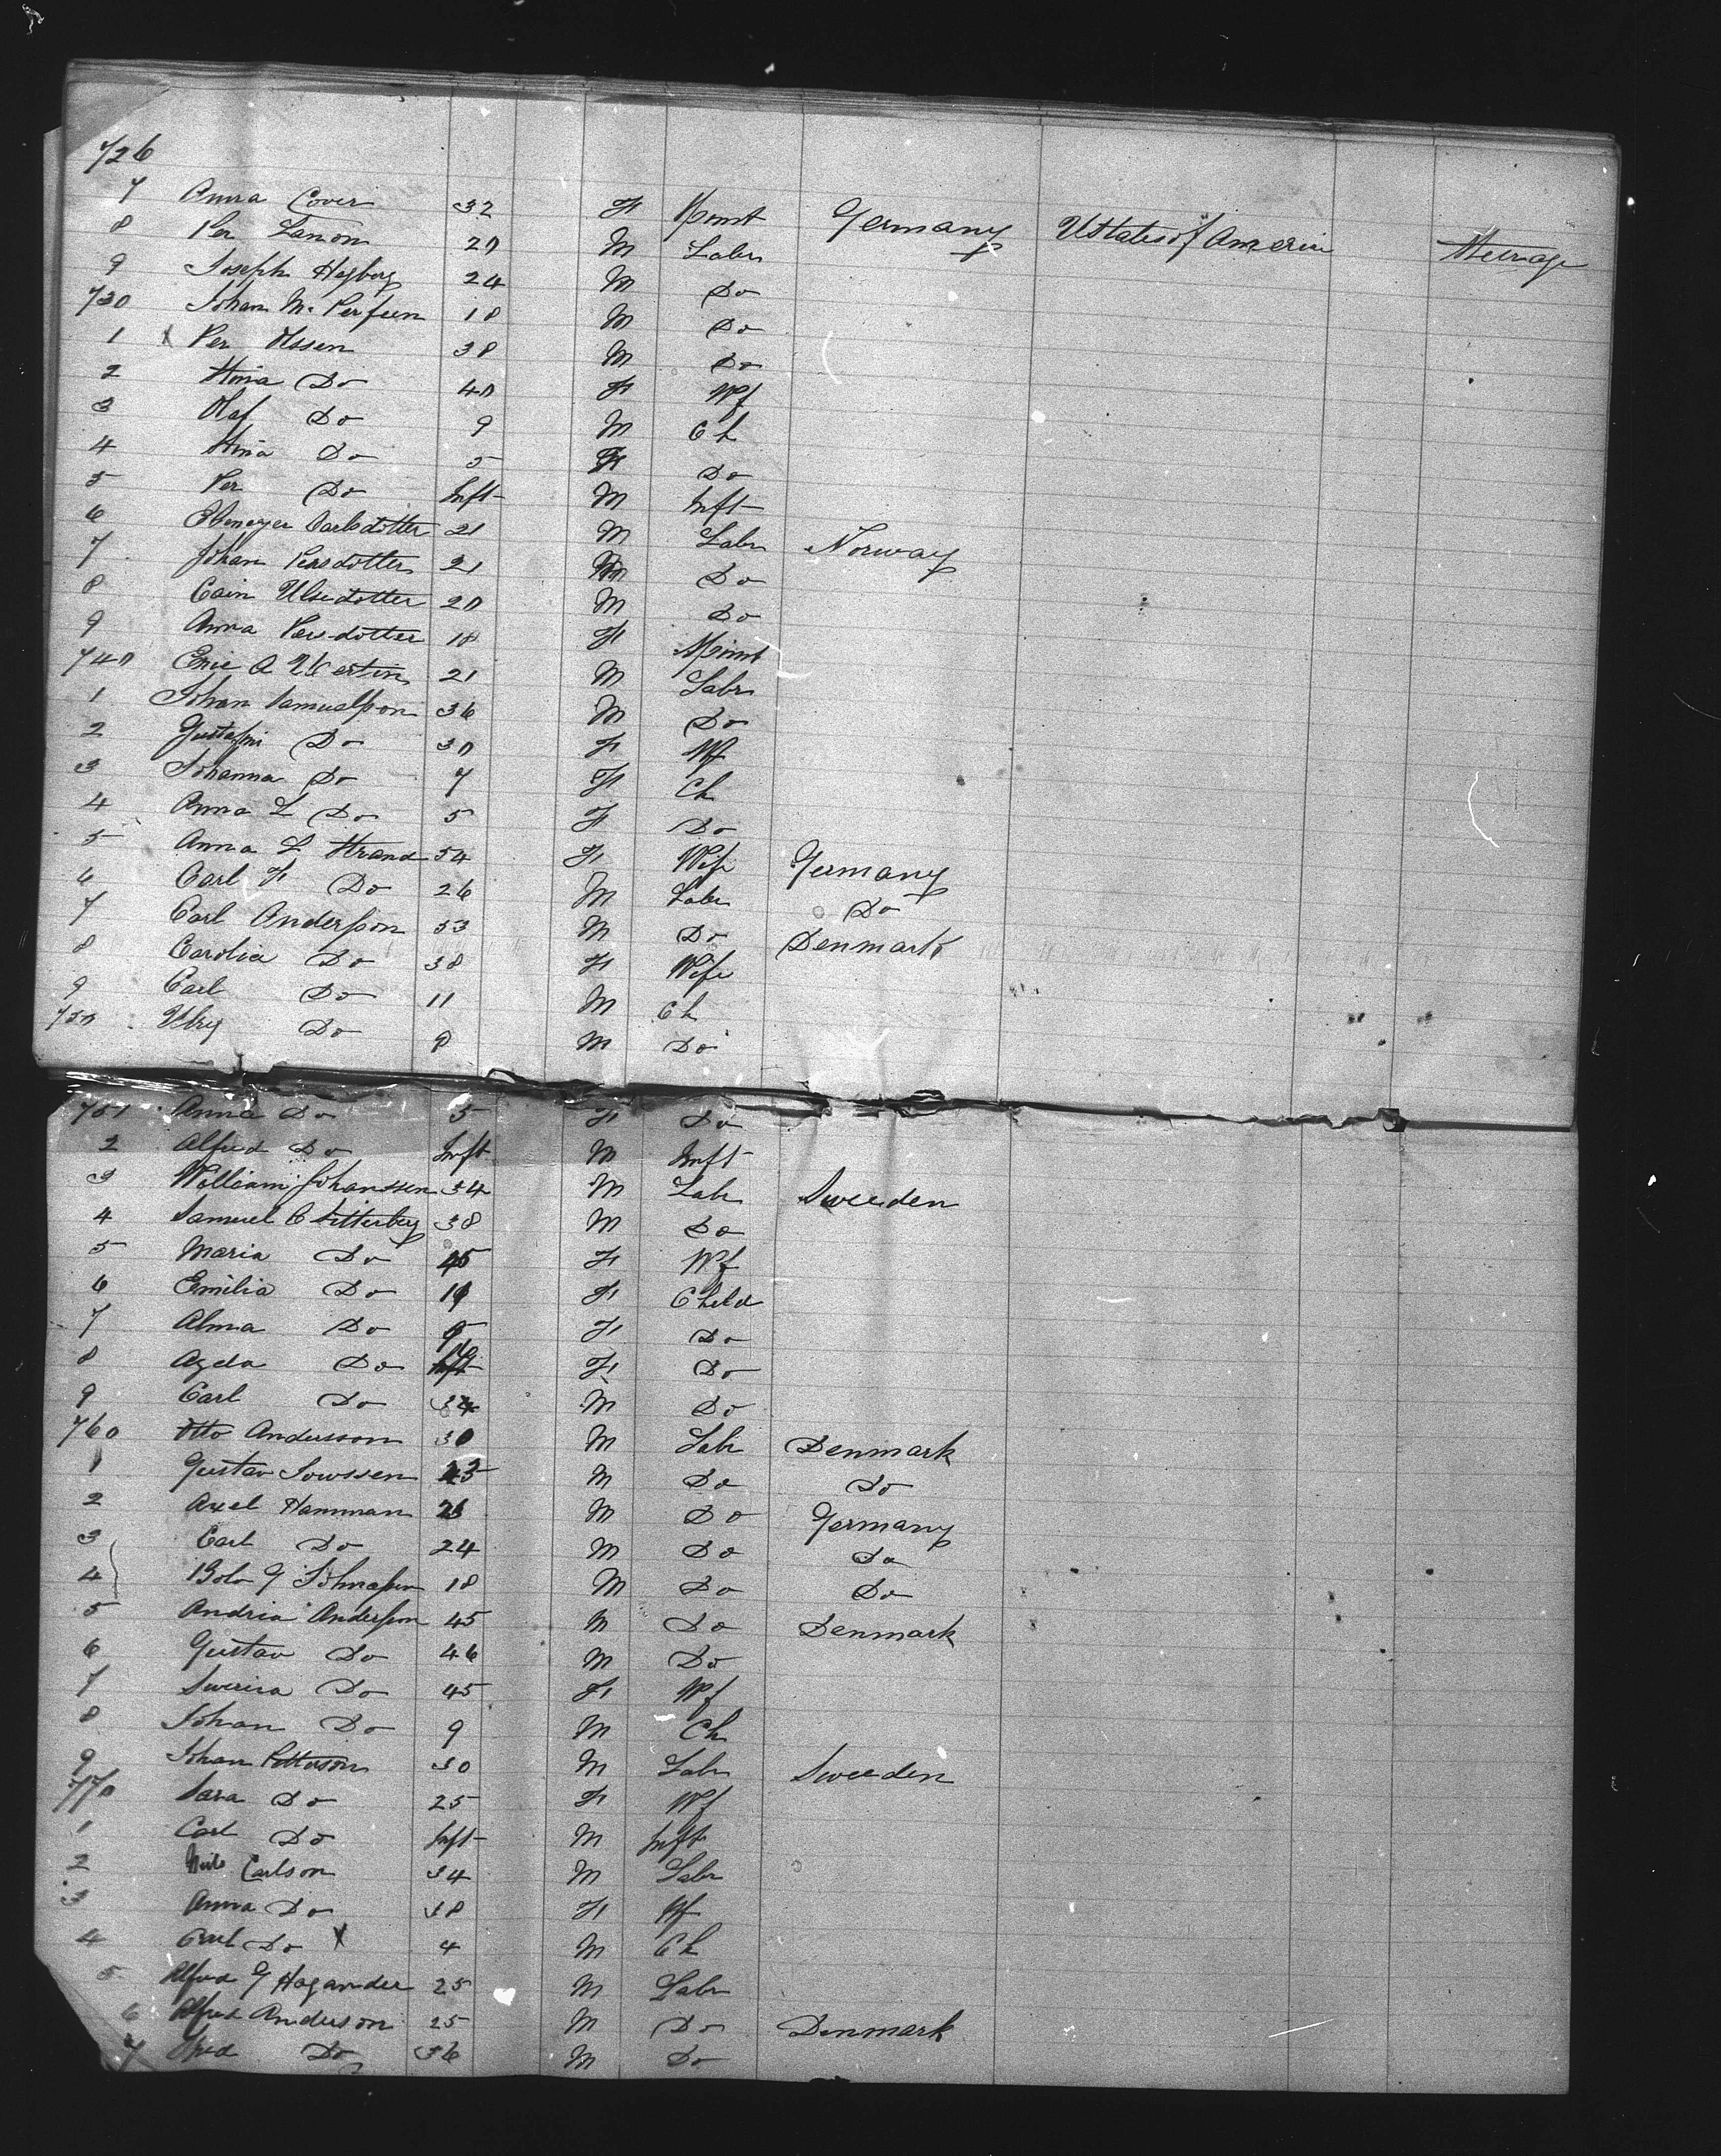 726
7 Anna Cover 32 F Spinst Germany U States of America Steerage
8 Per Larson 20 M Labr
9 Joseph Hegberg 24 M Do
730 Johan M. 18 M Do
1 X Per Olssen 38 M Do
2 Stina Do 40 F Wf
3 Olaf Do 9 M Ch
4 Stina Do 5 F Do
5 Per Do Inft M Inft
6 Carlsdotter 21 M Labr Norway
7 Johan Persdotter 21 M Do
8 Cain Ulsedotter 20 M Do
9 Anna Persdotter 18 F Spinst
740 Eric A 21 M Labr
1 Johan Samuelsson 36 M Do
2 Do 30 F Wf
3 Johanna Do 7 F Ch
4 Anna L Do 5 F Do
5 Anna L Strand 54 F Wife Germany
6 Carl F Do 26 M Labr Do
7 Carl Andersson 53 M Do Denmark
8 Carolia Do 38 F Wife
9 Carl Do 11 M Ch
750 Do 8 M Do
751 Anna Do 5 F Do
2 Alfred Do Inft M Inft
3 William Johanssen 34 M Labr Sweeden
4 Samuel C Sitterberg 38 M Do
5 Maria Do 45 F Wf
6 Emilia Do F Child
7 Alma Do F Do
8 Agda Do F Do
9 Carl Do M Do
760 Otto Andersson 30 M Labr Denmark
1 Gustav M Do Do
2 Axel Hamman M Do Germany
3 Carl Do 24 M Do Do
4 18 M Do Do
5 Andria Andersson 45 M Do Denmark
6 Gustav Do 46 M Do
7 Do 45 F Wf
8 Johan Do 9 M Ch
9 Johan Petterson 30 M Labr Sweeden
770 Sara Do 25 F Wf
1 Carl Do Inft M Inft
2 Nils Carlson 34 M Labr
3 Anna Do 38 F Wf
4 Carl Do X 4 M Ch
5 Alfred G Hagander 25 M Labr
6 Alfred Anderson 25 M Do Denmark
7 Do 36 M Do